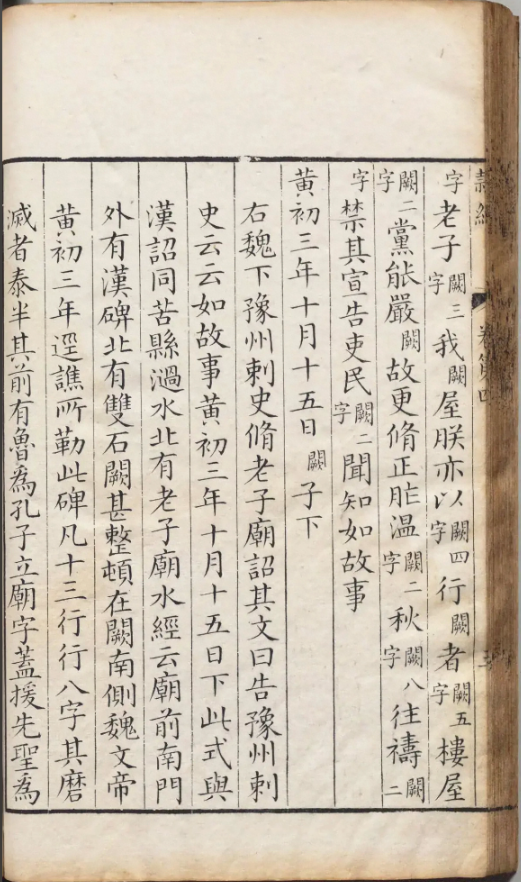 隸續 卷第四
字老子闕三字我闕屋朕亦以闕四字行闕者闕五字樓屋
闕二字黨能嚴闕故更脩正胙溫闕二字秋闕八字往禱闕二
字禁其宣告吏民闕二字聞知如故事
黃初三年十月十五日闕子下
右魏下豫州刺史脩老子廟詔其文曰告豫州刺
史云云如故事黃初三年十月十五日下此式與
漢詔同苦縣濄水北有老子廟水經云廟前南門
外有漢碑北有雙石闕甚整頓在闕南側魏文帝
黃初三年逕譙所勒此碑凡十三行行八字其磨
滅者泰半其前有魯爲孔子立廟字蓋援先聖爲